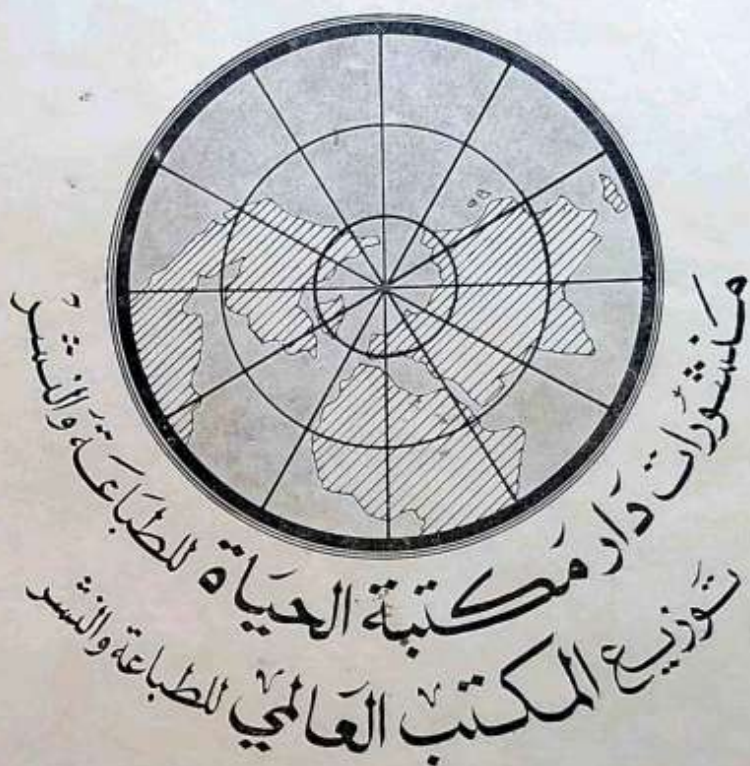 مَنشورَات دَار مَكتبة الحيَاة للطبَاعَة وَالنشرْ
تَوزيع المكتب العَالمي للطباعة والنشر